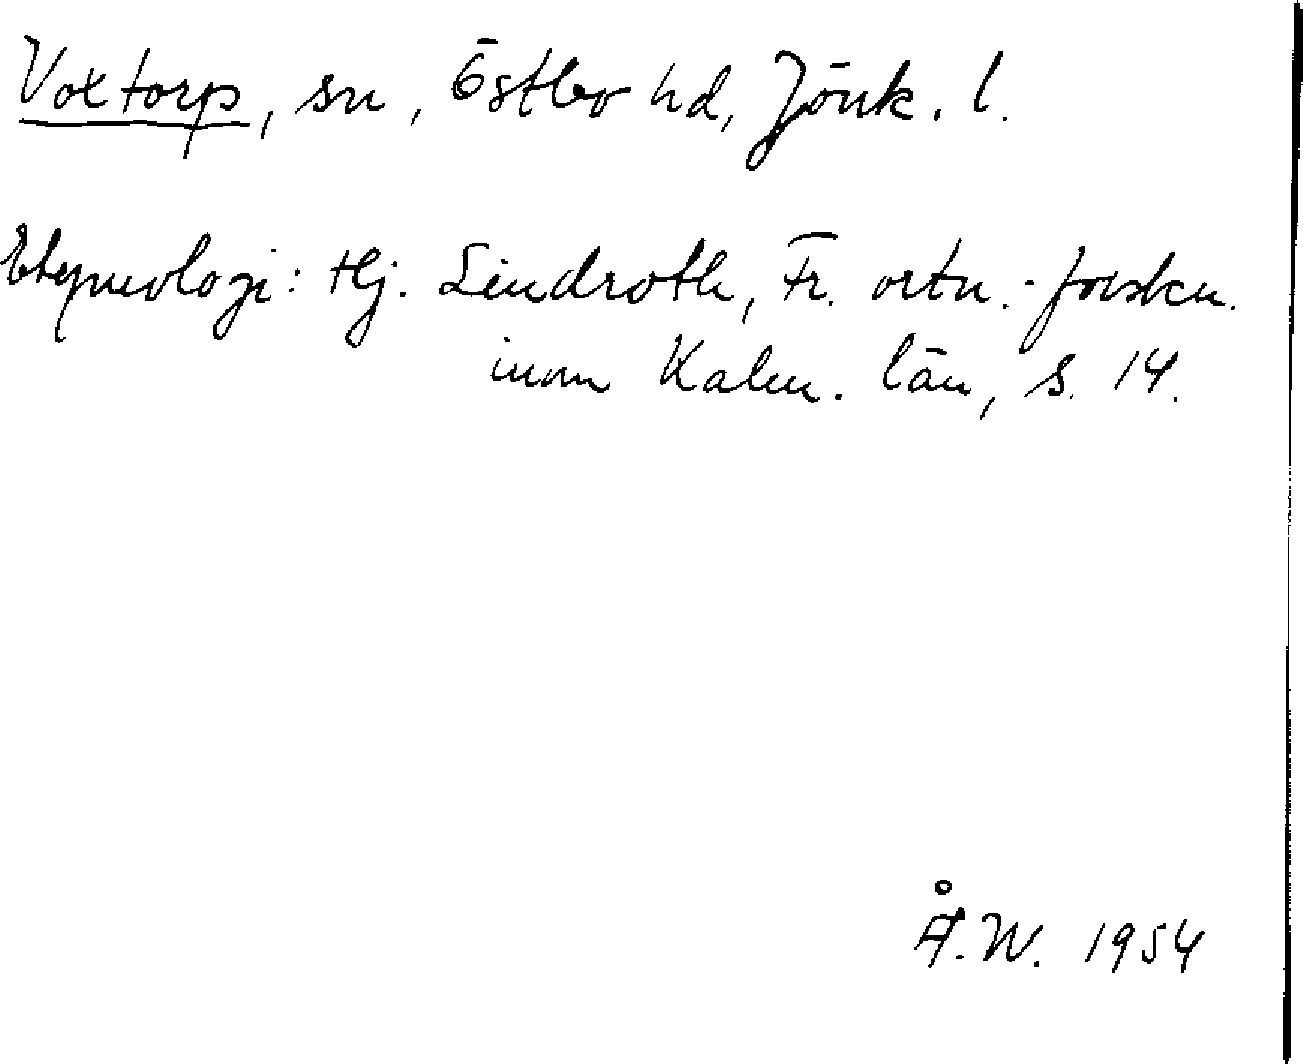 Voxtorp, sn, Östbo hd, Jönk. l.
Etymologi: Hj. Lindroth, Fr. ortn.-forskn.
inom Kalm. län, s. 14.
Å.W. 1954